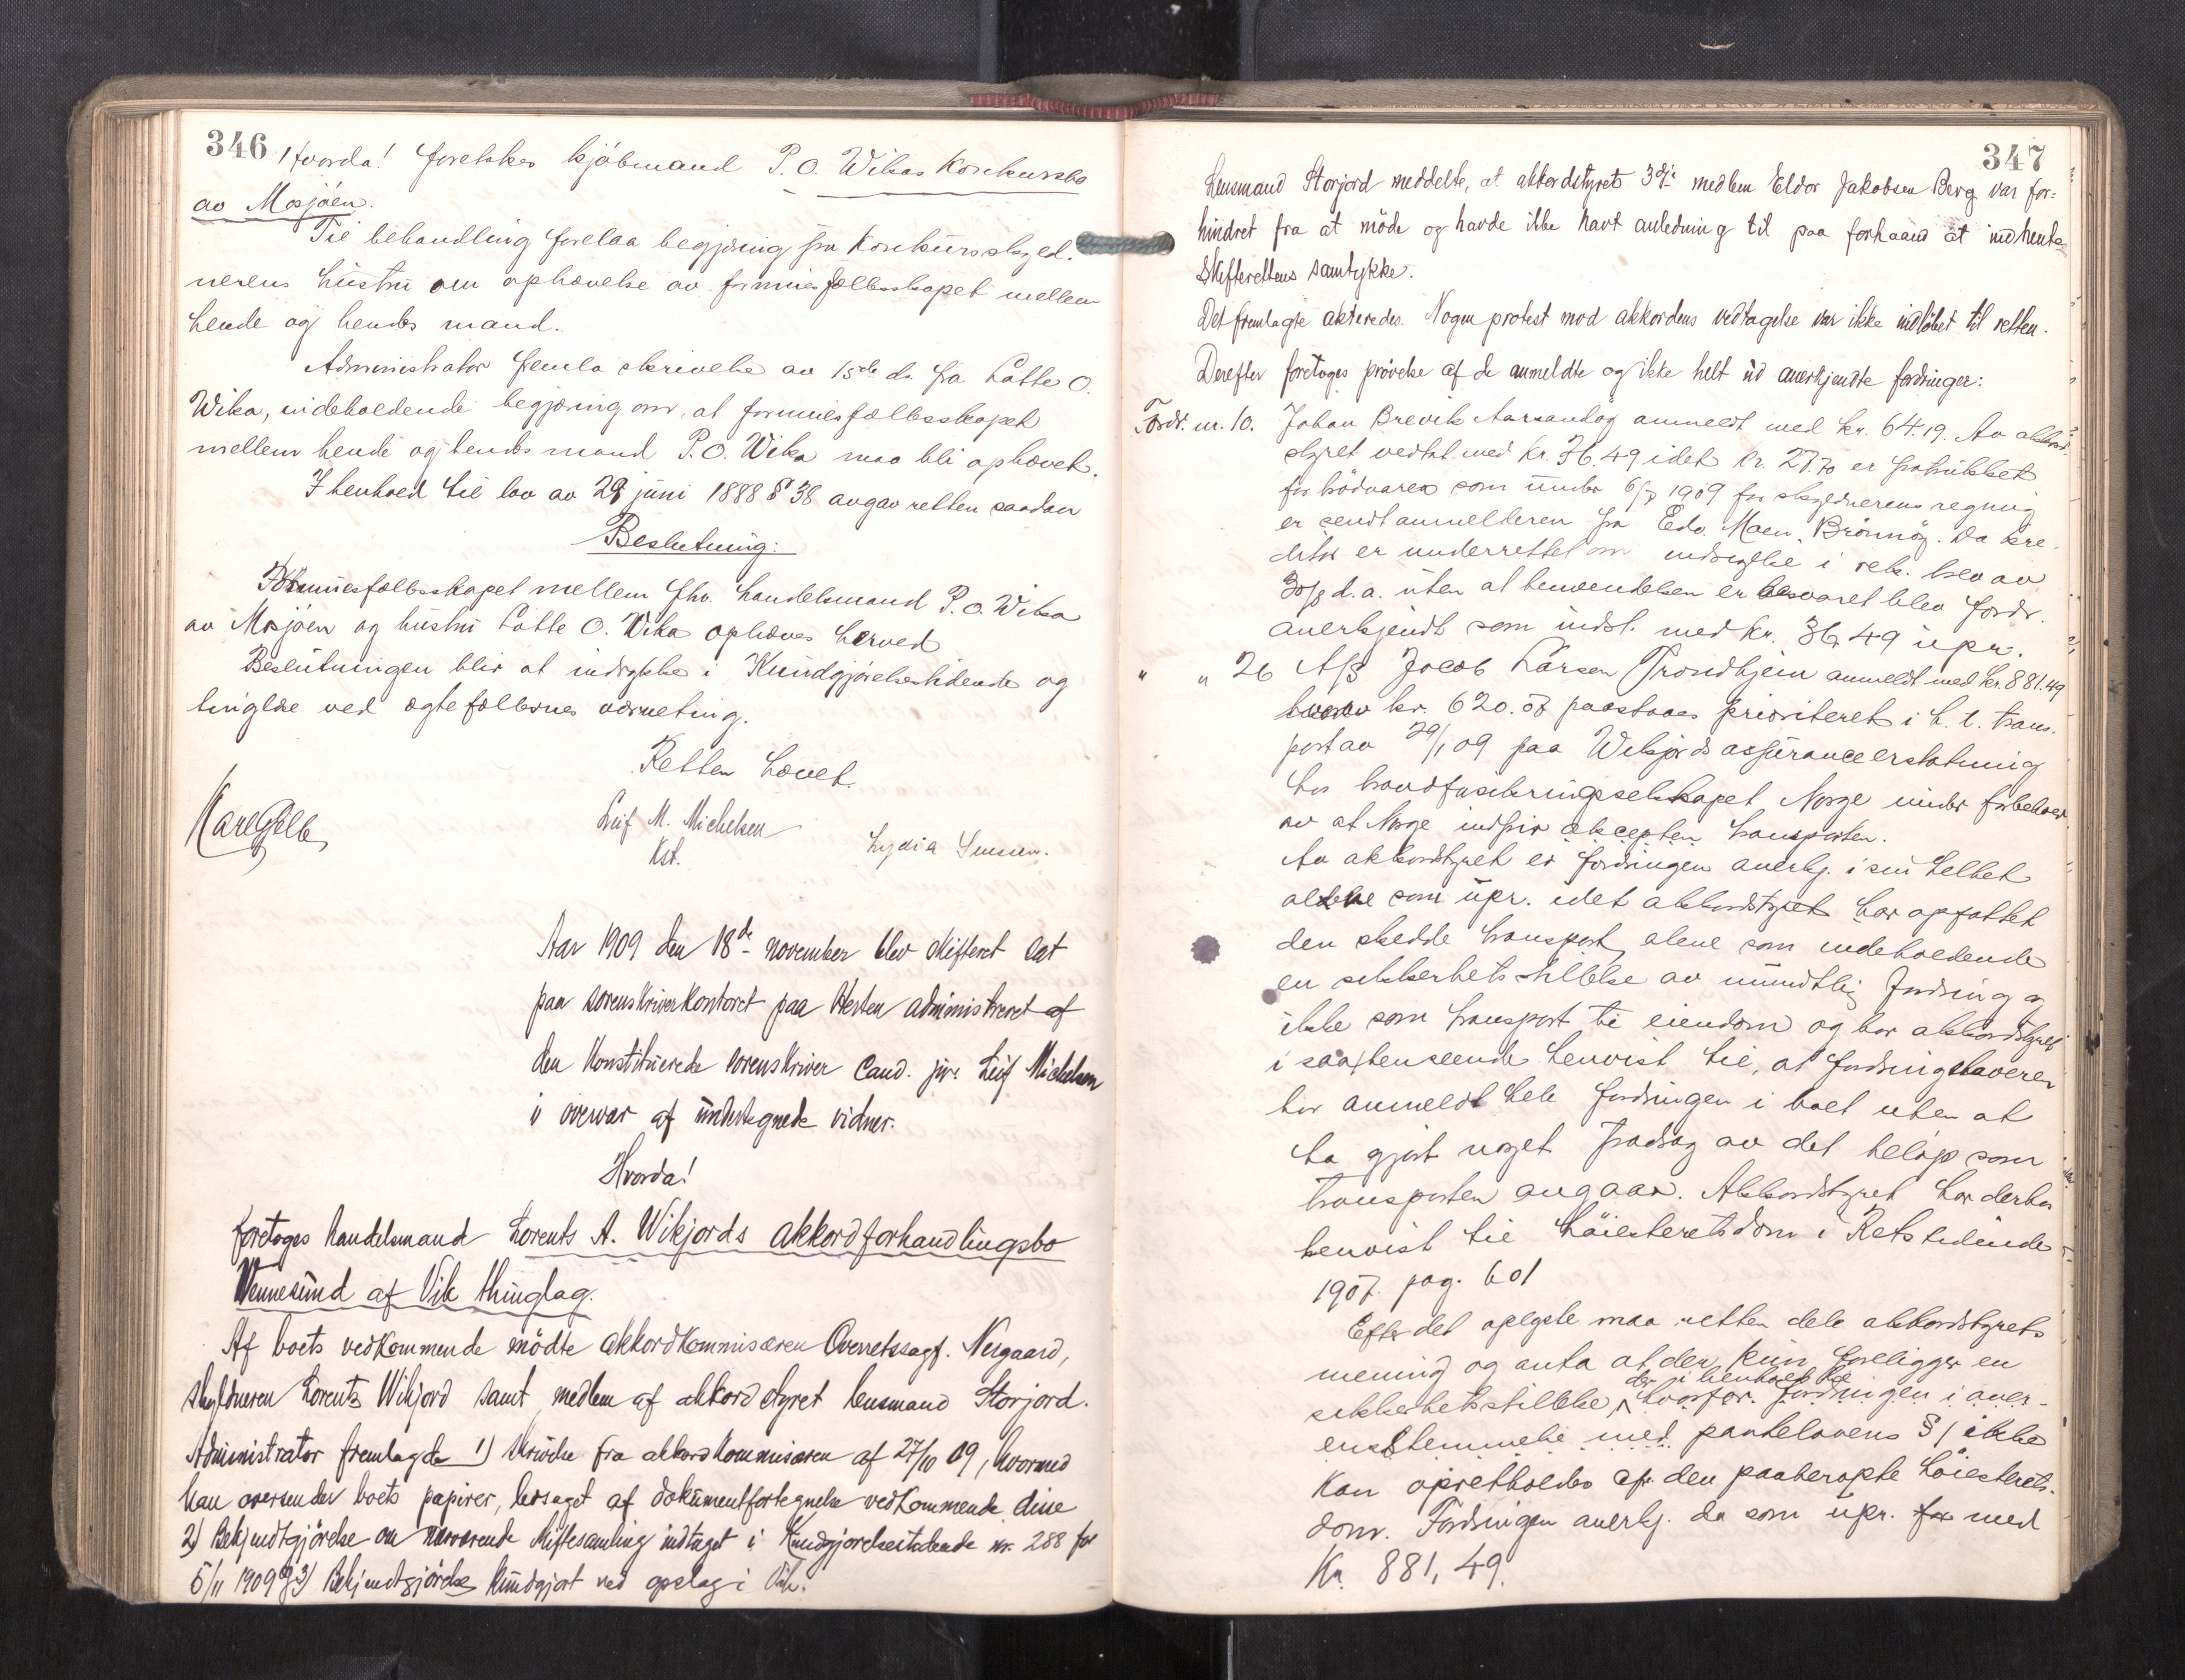 346
Hvorda! foretokes kjöbmand P. O. Wikas Konkursbo
av Mosjöen.
Til behandling forelaa begjæring fra Konkursskyld-
nerens hustru om ophævelse av formuesfællesskapet mellem
hende og hendes mand.
Administrator fremla skrivelse av 15de ds. fra Lotte O.
Wika, indeholdende begjæring om, at formuesfællesskapet
mellem hende og hendes mand P. O. Wika maa bli ophævet.
I henhold til lov av 29 juni 1888 § 38 avgav retten saadan
Beslutning:
Formuesfællesskapet mellem fhv. handelsmand P. O. Wika
av Mosjöen og hustru Lotte O. Wika ophæves herved
Beslutningen blir at indrykke i Kundgjörelsestidende og
tinglæse ved ægtefællernes værneting.
Retten hævet.
Leif M. Michelsen
Kst.
Lydia
Aar 1909 den 18de november blev skifteret sat
paa sorenskriverkontoret paa Herten administreret af
den Konstituerede sorenskriver Cand. jur. Leif Michelsen
i overvær af undertegnede vidner.
Hvorda!
foretoges handelsmand Lorents A. Wikjords akkordforhandlingsbo
Vennesund af Vik thinglag.
Af boets vedkommende mödte akkordkommisæren Overretssagf. Nesgaard,
skyldneren Lorents Wikjord samt medlem af akkordstyret lensmand Storjord.
Administrator fremlagde 1) skrivelse fra akkordkommisæren af 27/10 09, hvormed
han oversender boets papirer, ledsaget af dokumentfortegnelse vedkommende disse
2) Bekjendtgjörelse om nærværende skiftesamling indtaget i Kundgjörelsestidende nr. 288 for
5/11 1909 og 3) Bekjendtgjörelse kundgjort ved opslag i Vik.
347
Lensmand Storjord meddelte, at akkordstyrets 3dje medlem Eldor Jakobsen Berg var for-
hindret fra at möde og havde ikke havt anledning til paa forhaand at indhente
Skifterettens samtykke.
Det fremlagte akteredes. Nogen protest mod akkordens vedtagelse var ikke indlöbet til retten.
Derefter foretoges prövelse af de anmeldte og ikke helt ud anerkjendte fordringer:
Fordr. nr. 10. Johan Brevik Aarsandög anmeldt med kr. 64.19. Av akkord-
styret vedtat med kr. 36.49 idet kr. 27.70 er fratrukket
for brödvarer som under 6/7 1909 for skyldnerens regning
er sendt anmelderen fra Edv. Moen, Brönnöy. Da kre-
ditor er underrettet om indsigelse i rek. brev av
30/8 d. a. uten at henvendelsen er besvaret blev fordr.
anerkjendt som indst. med kr. 36,49 upr.
" " 26 A/S Jacob Larsen Trondhjem anmeldt med kr. 881.49
hvorav kr. 620.08 paastaaes prioriteret i h. t. trans-
port av 29/1 09 paa Wikjords assuranceerstatning
hos brandforsikringsselskapet Norge under forbehold
av at Norge indfrir akcepten transporten.
Av akkordstyret er fordringen anerkj. i sin helhet
alene som upr. idet akkordstyret har opfattet
den skedde transport alene som indeholdende
en sikkerhetsstillelse av mundtlig fordring og
ikke som transport til eiendom og har akkordstyret
i saa henseende henvist til, at fordringshaveren
har anmeldt hele fordringen i boet uten at
ha gjort noget fradrag av det belöp som
transporten angaar. Akkordstyret har derhos
henvist til Höiesteretsdom i Retstidende
1907. pag. 601
Efter det oplyste maa retten dele akkordstyrets
mening og anta at der kun foreligger en
sikkerhetsstillelse, der i henhold til hvorfor fordringen i over-
ensstemmelse med pantelovens § 1 ikke
kan opretholdes cfr. den paaberopte Höiesterets-
dom. Fordringen anerkj. da som upr. for med
Kr. 881,49.